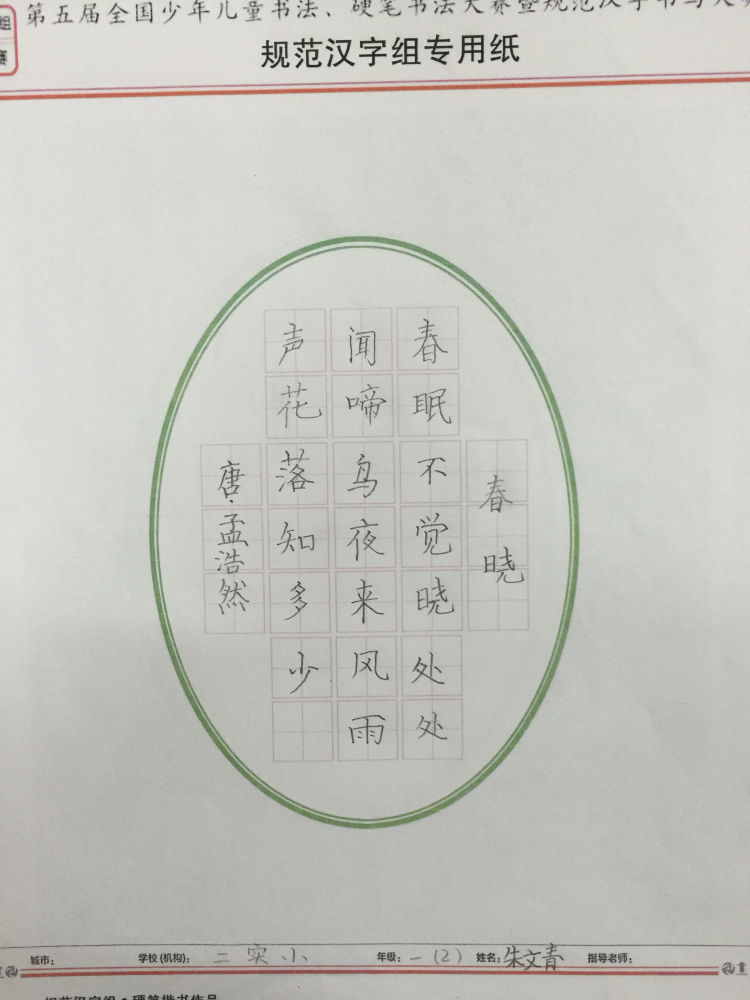 组
赛
第五届全国少年儿童书法、硬笔书法大赛暨规范汉字书写大赛
规范汉字组专用纸
春晓
春眠不觉晓处处
闻啼鸟夜来风雨
声花落知多少
唐·孟浩然
城市: 学校(机构): 二实小 年级: 一(2) 姓名: 朱文青 指导老师:
规范汉字组·硬笔楷书作品